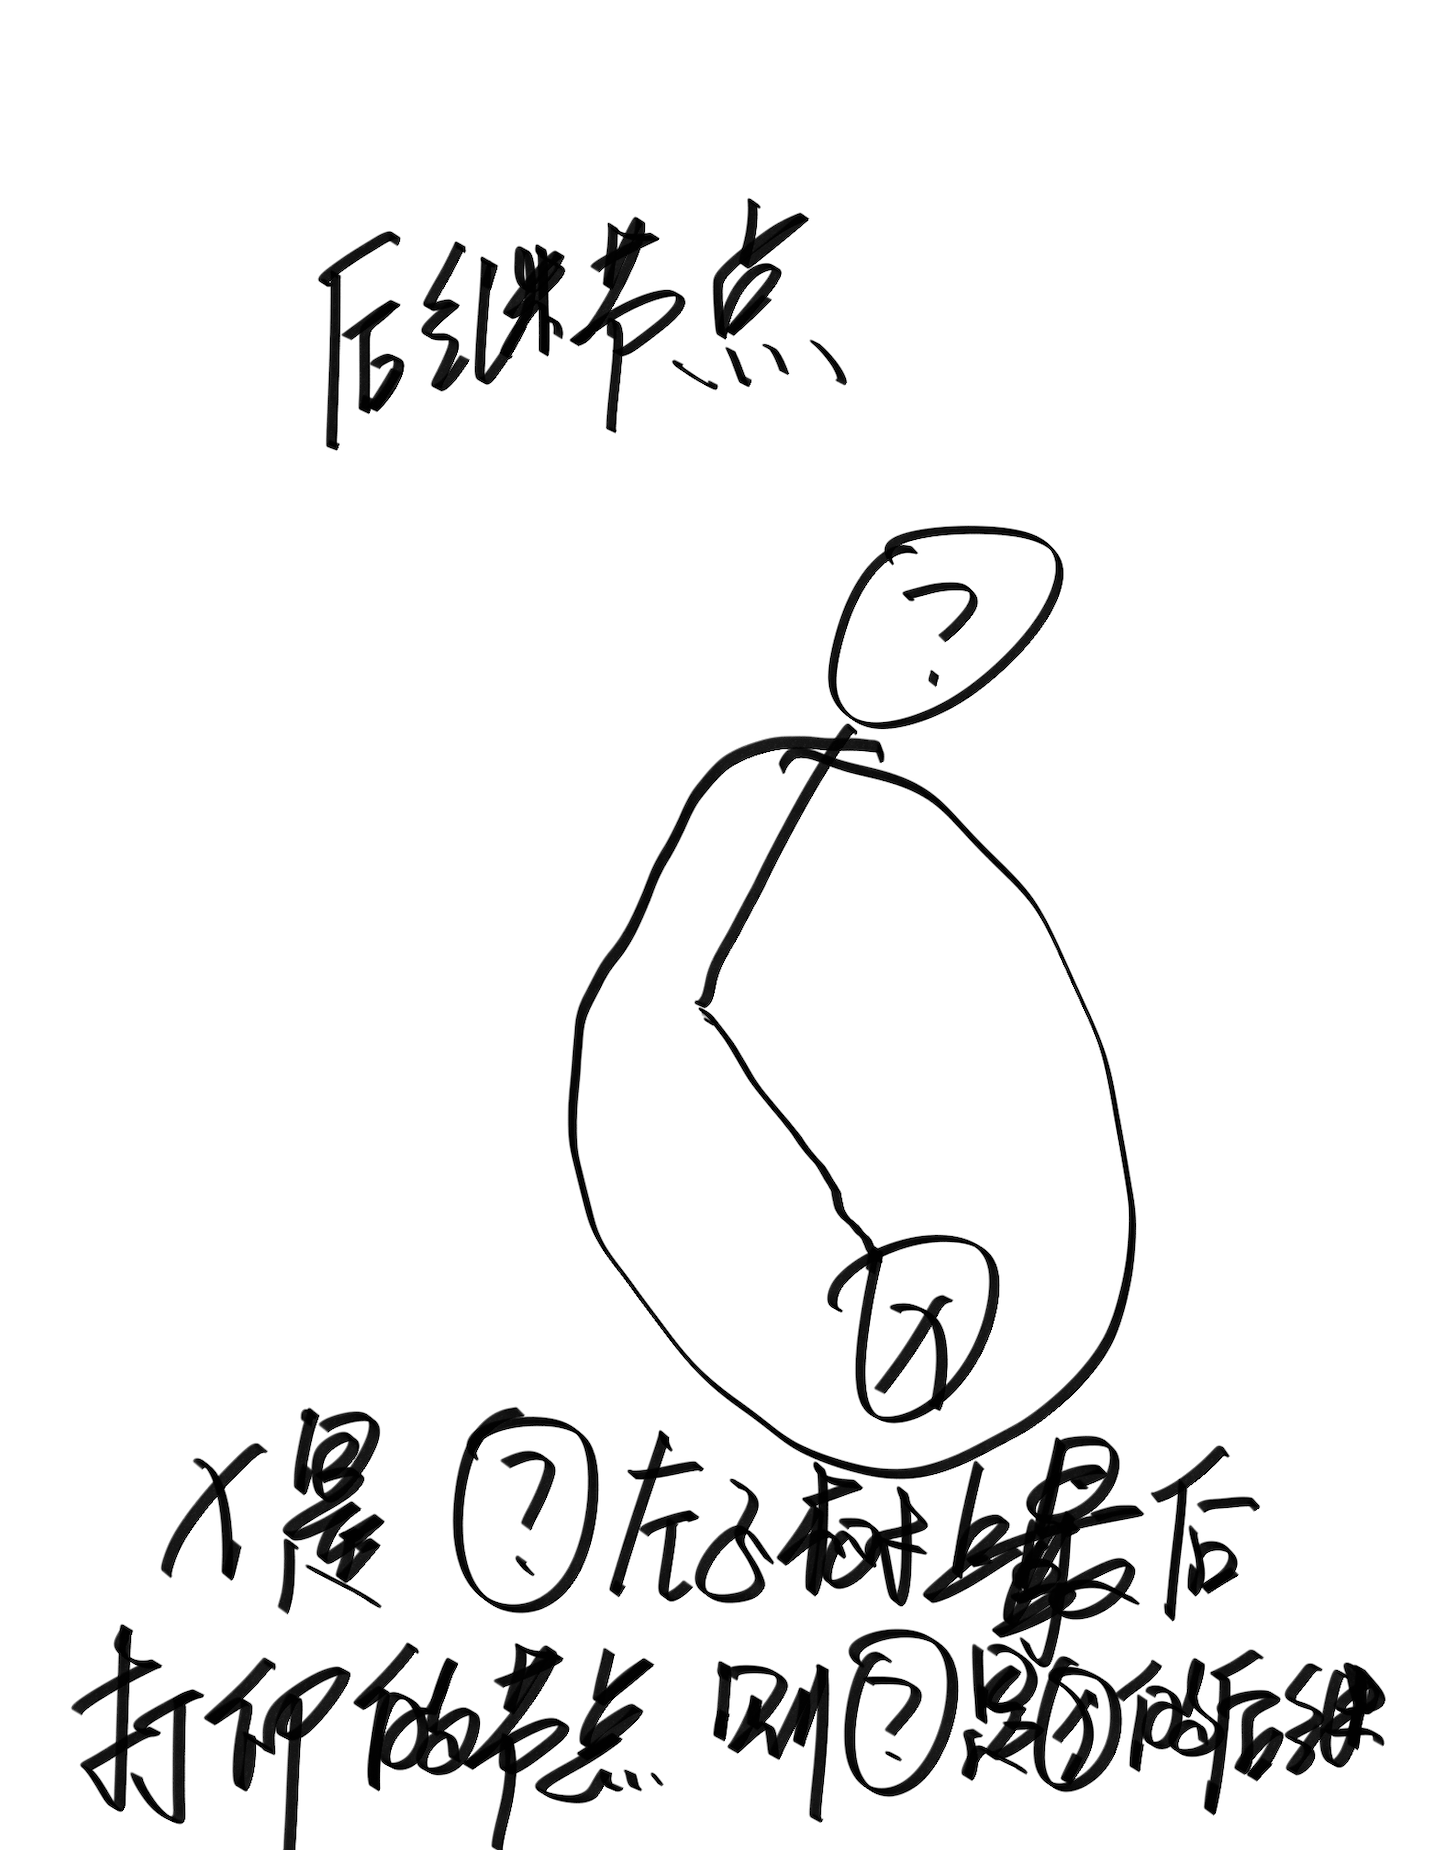 后继节点
?
X
X是?左子树上最后
打印的节点 则?是X的后继